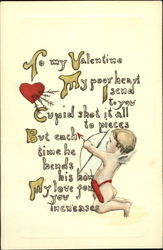 To my Valentine
My poor heart
I send
to you
Cupid shot it all
to pieces
But each
time he
bends
his bow
My love for
you
increases